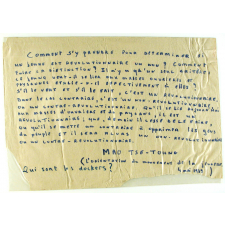 COMMENT S'Y PRENDRE POUR DETERMINER SI
UN JEUNE EST REVOLUTIONNAIRE OU NON ? COMMENT
FAIRE LA DISTINCTION ? IL N'Y A QU'UN SEUL CRITÈRE :
CE JEUNE VEUT-IL SE LIER AUX MASSES OUVRIÈRES ET
PAYSANNES ET SE LIE-T-IL EFFECTIVEMENT À ELLES ?
S'IL LE VEUT ET S'IL LE FAIT, C'EST UN REVOLUTIONNAIRE,
DANS LE CAS CONTRAIRE, C'EST UN NON-REVOLUTIONNAIRE
OU UN CONTRE-REVOLUTIONNAIRE. QU'IL SE LIE AUJOURD'HUI
AUX MASSES D'OUVRIERS ET DE PAYSANS, IL EST UN
REVOLUTIONNAIRE ; QUE, DEMAIN IL CESSE DE LE FAIRE
OU QU'IL SE METTE AU CONTRAIRE À OPPRIMER LES GENS
DU PEUPLE ET IL SERA ALORS UN NON-REVOLUTIONNAIRE
OU UN CONTRE-REVOLUTIONNAIRE.
MAO TSE-TOUNG
(L'orientation du mouvement de la jeunesse
4 mai 1939)
Qui sont les dockers ?